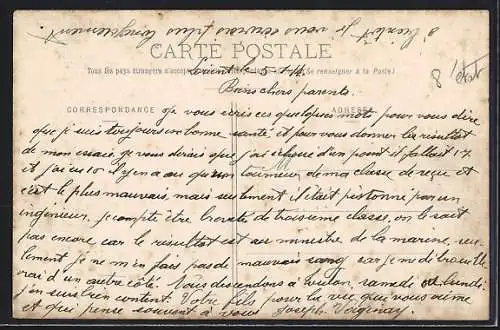 à bientôt je vous écrirais plus longuement.
CARTE POSTALE
Tous les pays étrangers d'accep (Se renseigner à la Poste)
Lorient le 5-1-14
Bien chers parents.
CORRESPONDANCE ADRESSE
Je vous écris ces quelques mots pour vous dire
que je suis toujours en bonne santé et pour vous donner le résultat
de mon essaie je vous dirais que j'ai d'un point il fallait 17
et j'ai eu 16 il y en a eu qu'un de ma classe de reçu et
c'est le plus mauvais, mais seulement il était pistonné par un
ingénieur, je compte être breveté de troisième classe, on le sait
pas encore car le résultat est au ministre de la marine, seu-
lement je ne m'en fais pas de mauvais sang car je me
vrai d'un autre côté. Nous descendons à Toulon, samedi ou lundi
j'en suis bien content. Votre fils pour la vie qui vous aime
et qui pense souvent à vous Joseph